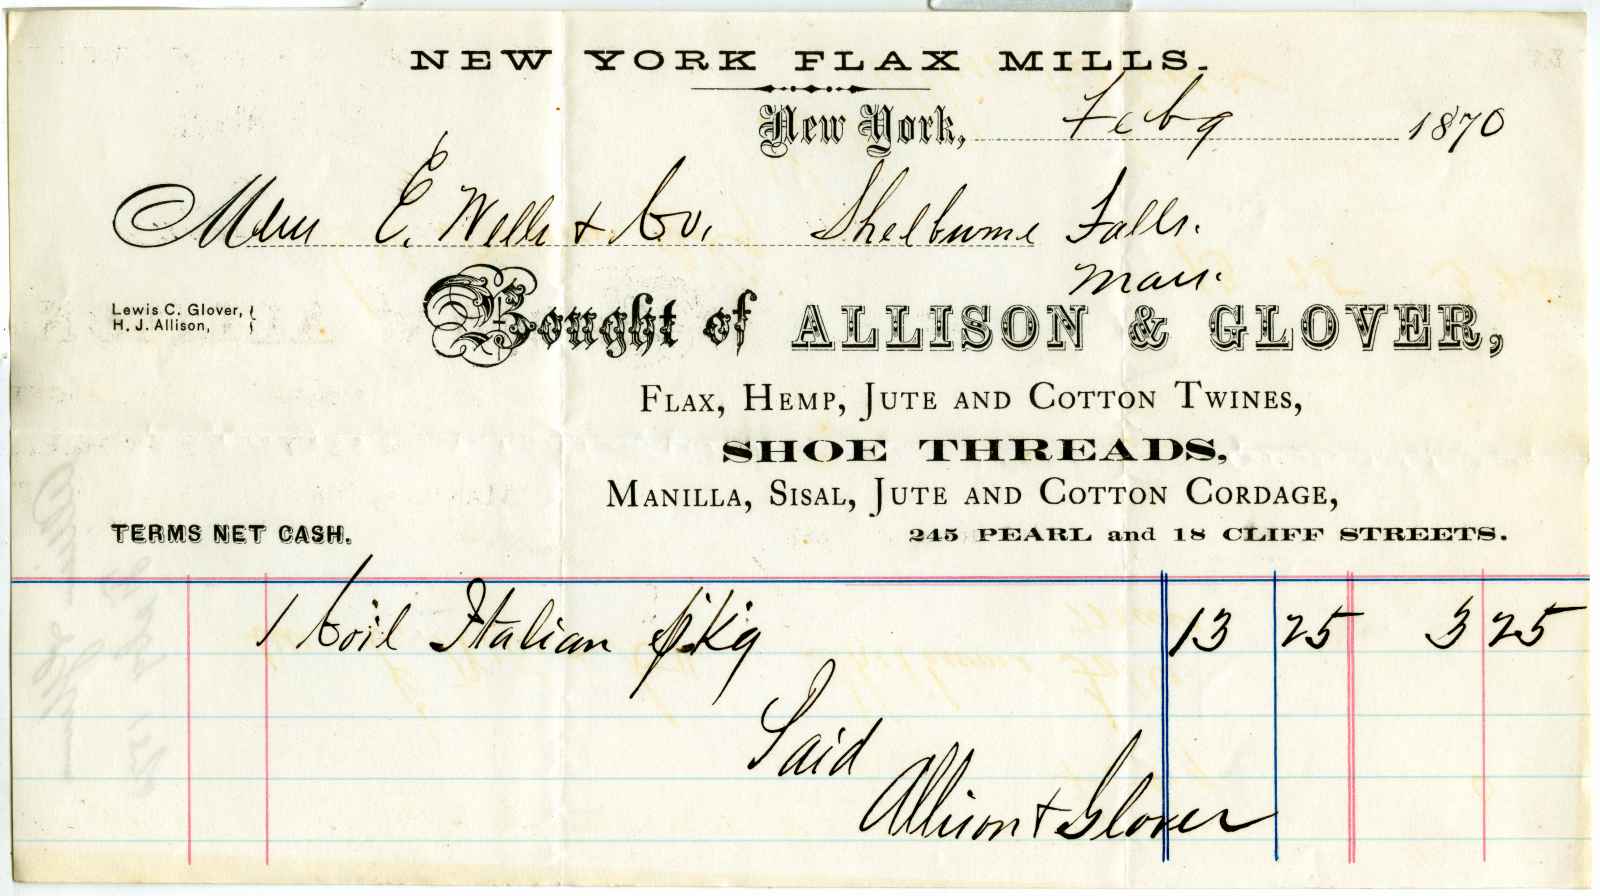 NEW YORK FLAX MILLS.
New York, Feb 9 1870
Mess E. Wells & Co. Shelburne Falls.
Mass.
Lewis C. Glover,
H. J. Allison,
Bought of ALLISON & GLOVER,
FLAX, HEMP, JUTE AND COTTON TWINES,
SHOE THREADS,
MANILLA, SISAL, JUTE AND COTTON CORDAGE,
TERMS NET CASH. 245 PEARL and 18 CLIFF STREETS.
1 Coil Italian pkg 13 25 3 25
Paid
Allison & Glover